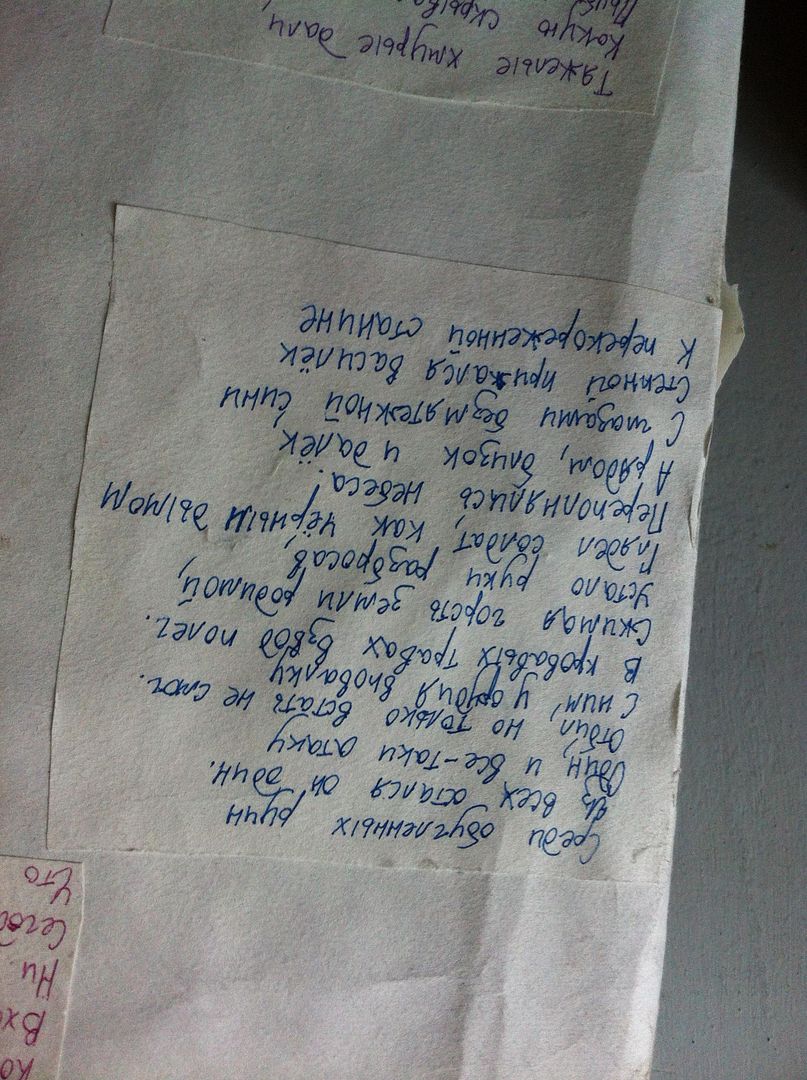 Ни
Сегод
Что
Среди обугленных руин
Из всех остался он один.
Один, и все-таки атаку
Отбил, но только встать не смог.
С ним, у орудия вповалку
В кровавых травах взвод полег.
Сжимая горсть земли родимой,
Устало руки разбросав,
Глядел солдат, как чёрным дымом
Переполнялись небеса!
А рядом, близок и далёк
С глазами безмятежной сини,
Степной прижался василёк
К перекореженной станине
Тяжелые хмурые дали
Какую скрыва